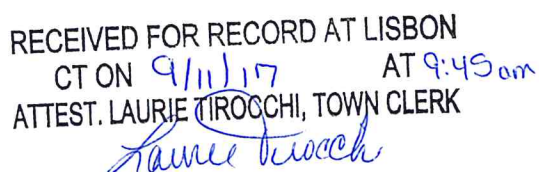 RECEIVED FOR RECORD AT LISBON
CT ON 9/11/17 AT 9:45 am
ATTEST. LAURIE TIROCCHI, TOWN CLERK
Laurie Tirocchi